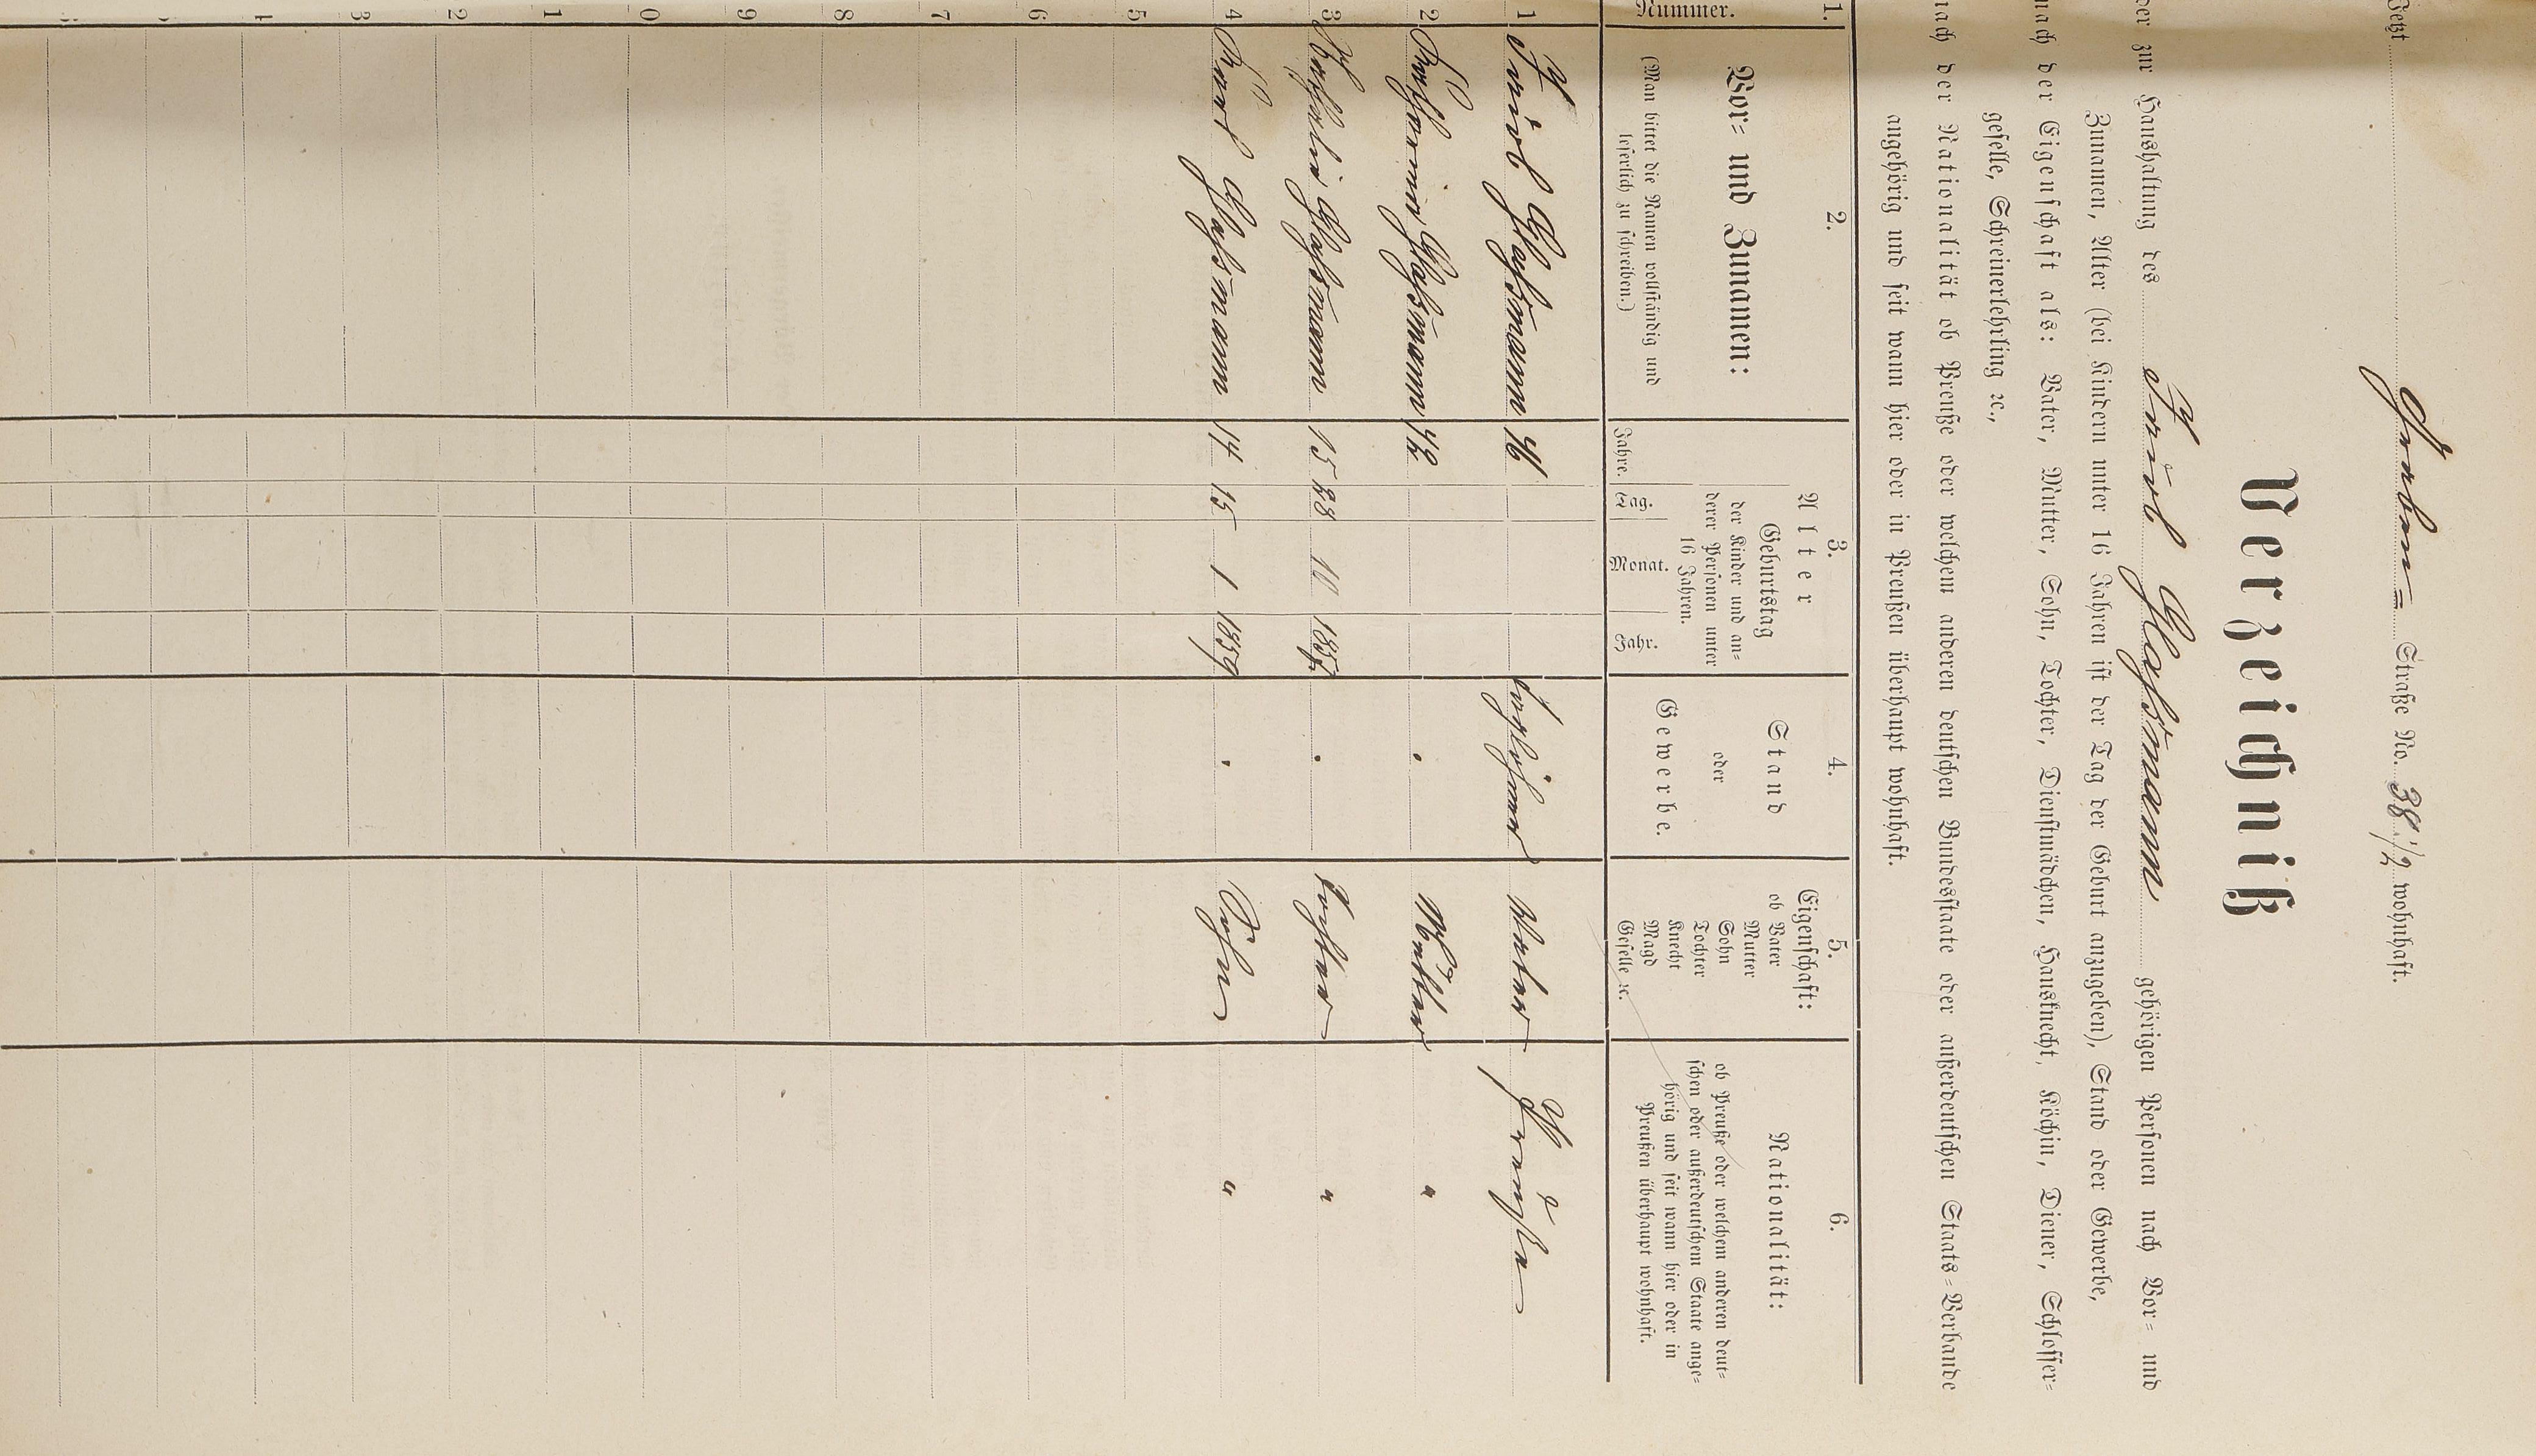 Jetzt Straße No. 38 1/2 wohnhaft.
Verzeichniß
der zur Haushaltung des Glaßmann gehörigen Personen nach Vor- und
Zunamen, Alter (bei Kindern unter 16 Jahren ist der Tag der Geburt anzugeben), Stand oder Gewerbe,
nach der Eigenschaft als: Vater, Mutter, Sohn, Tochter, Dienstmädchen, Hausknecht, Köchin, Diener, Schlosser-
geselle, Schreinerlehrling ꝛc.,
nach der Nationalität ob Preuße oder welchem anderen deutschen Bundesstaate oder außerdeutschen Staats-Verbande
angehörig und seit wann hier oder in Preußen überhaupt wohnhaft.
1. 2. 3. 4. 5. 6.
Nummer.
Vor- und Zunamen:
(Man bittet die Namen vollständig und
leserlich zu schreiben.)
Alter
Geburtstag
der Kinder und an-
derer Personen unter
16 Jahren.
Jahre. Tag. Monat. Jahr.
Stand
oder
Gewerbe.
Eigenschaft:
ob Vater
Mutter
Sohn
Tochter
Knecht
Magd
Geselle ꝛc.
Nationalität:
ob Preuße oder welchem anderen deut-
schen oder außerdeutschem Staate ange-
hörig und seit wann hier oder in
Preußen überhaupt wohnhaft.
1 Glaßmann 46 Vater Preußen
2 Glaßmann 42 " Mutter "
3 Glaßmann 15 28 10 1857 " Tochter "
4 Glaßmann 14 15 1 1859 " Sohn "
5
6
7
8
9
0
1
2
3
4